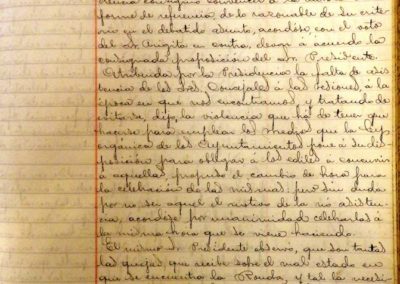 forme de referencia, de lo razonable de su crite-
rio en el debatido asunto, acordóse, con el voto
del Sr. Angita en contra, elevar a acuerdo la
consignada proposición del Sr. Presidente.
Atribuida por la Presidencia la falta de asis-
tencia de los Sres. Concejales á las sesiones, á la
época en que nos encontramos, y tratando de
evitarse, dijo, la violencia que ha de tener que
hacerse para emplear los medios que la Ley
orgánica de los Ayuntamientos pone á su dis-
posición para obligar á los ediles á concurrir
á aquellas, propuso el cambio de hora para
la celebración de las mismas: pero sin duda
por no ser aquel el motivo de la no asisten-
cia, acordóse por unanimidad celebrarlas á
la misma hora que se viene haciendo.
El mismo Sr. Presidente observó, que son tantas
las quejas que recibe sobre el mal estado en
que se encuentra la Ronda, y tal la necesi-